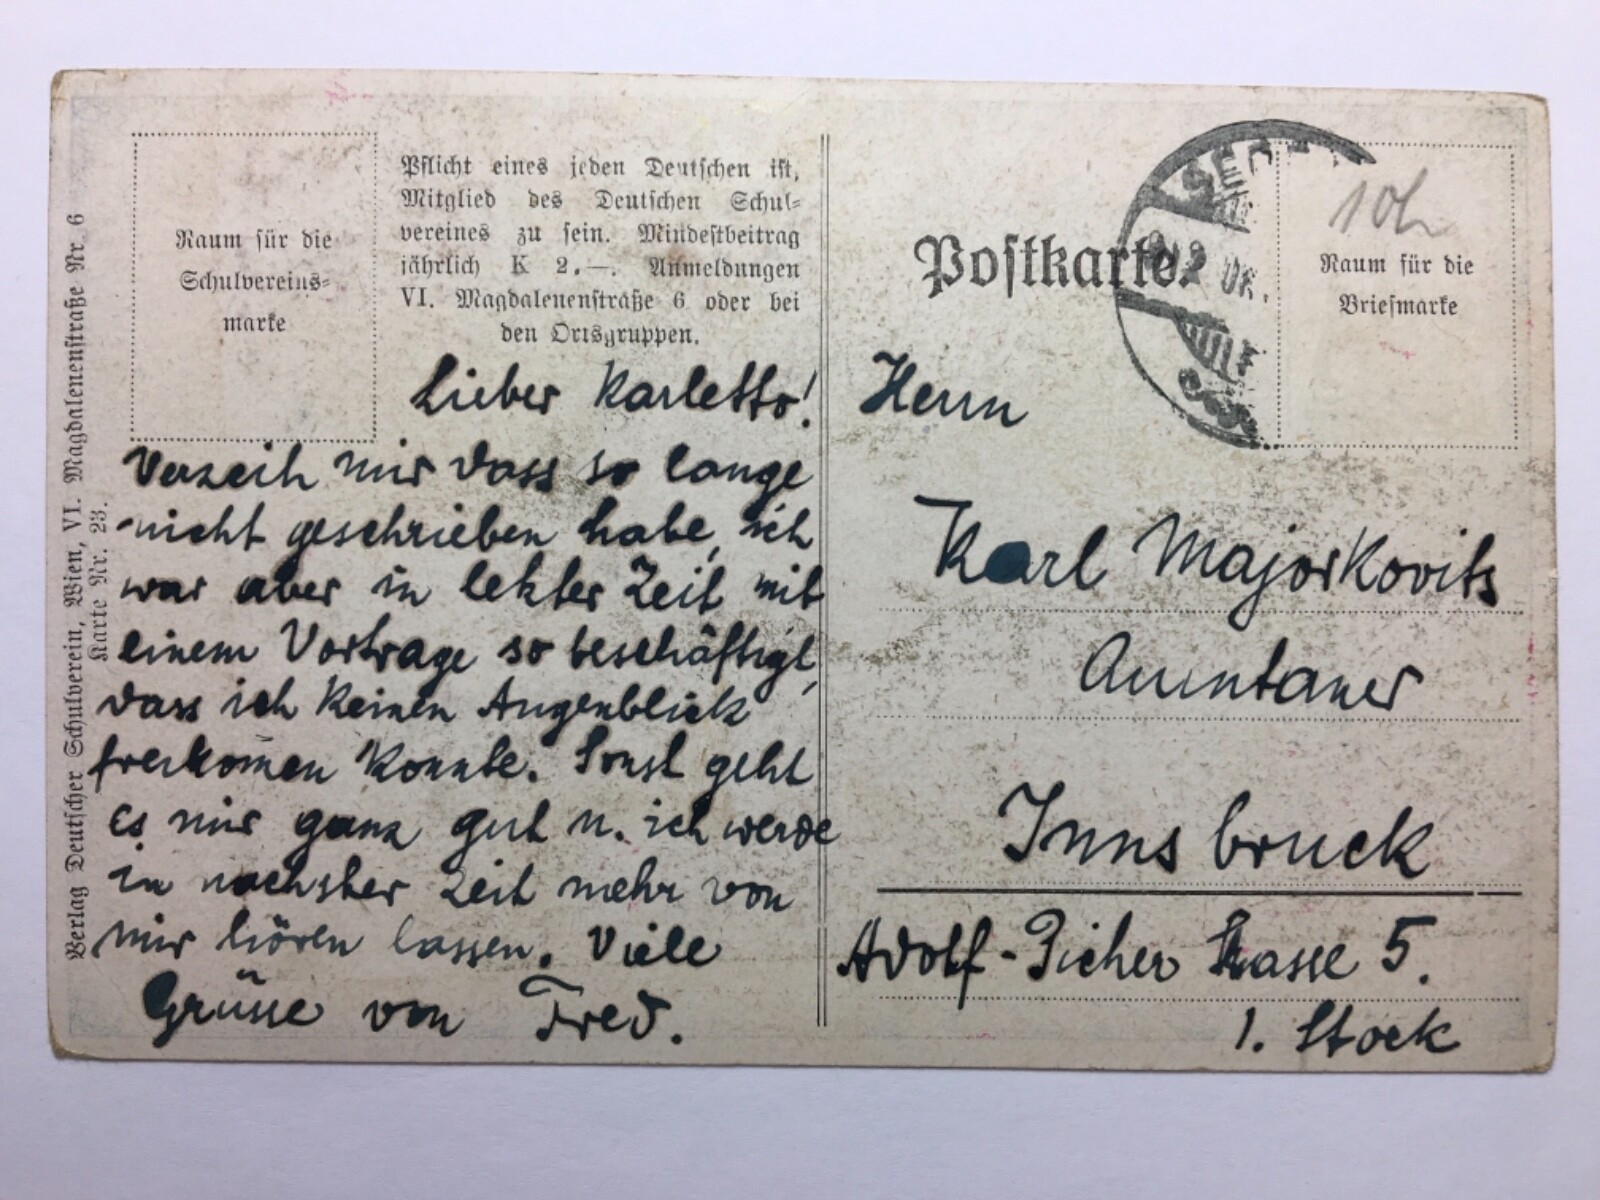 Verlag Deutscher Schulverein, Wien, VI. Magdalenenstraße Nr. 6
Karte Nr. 23.
Raum für die
Schulvereins-
marke
Pflicht eines jeden Deutschen ist,
Mitglied des Deutschen Schul-
vereines zu sein. Mindestbeitrag
jährlich K 2.—. Anmeldungen
VI. Magdalenenstraße 6 oder bei
den Ortsgruppen.
Lieber Karletto!
Verzeih mir dass so lange
nicht geschrieben habe, ich
war aber in letzter Zeit mit
einem Vortrage so beschäftigt,
dass ich keinen Augenblick
freikom̄en konnte. Sonst geht
es mir ganz gut u. ich werde
in nächster Zeit mehr von
mir hören lassen. Viele
Grüsse von Fred.
Postkarte.
10h
Raum für die
Briefmarke
Herrn
Karl Majorkovits
Innsbruck
Adolf-Picher Strasse 5.
1. Stock